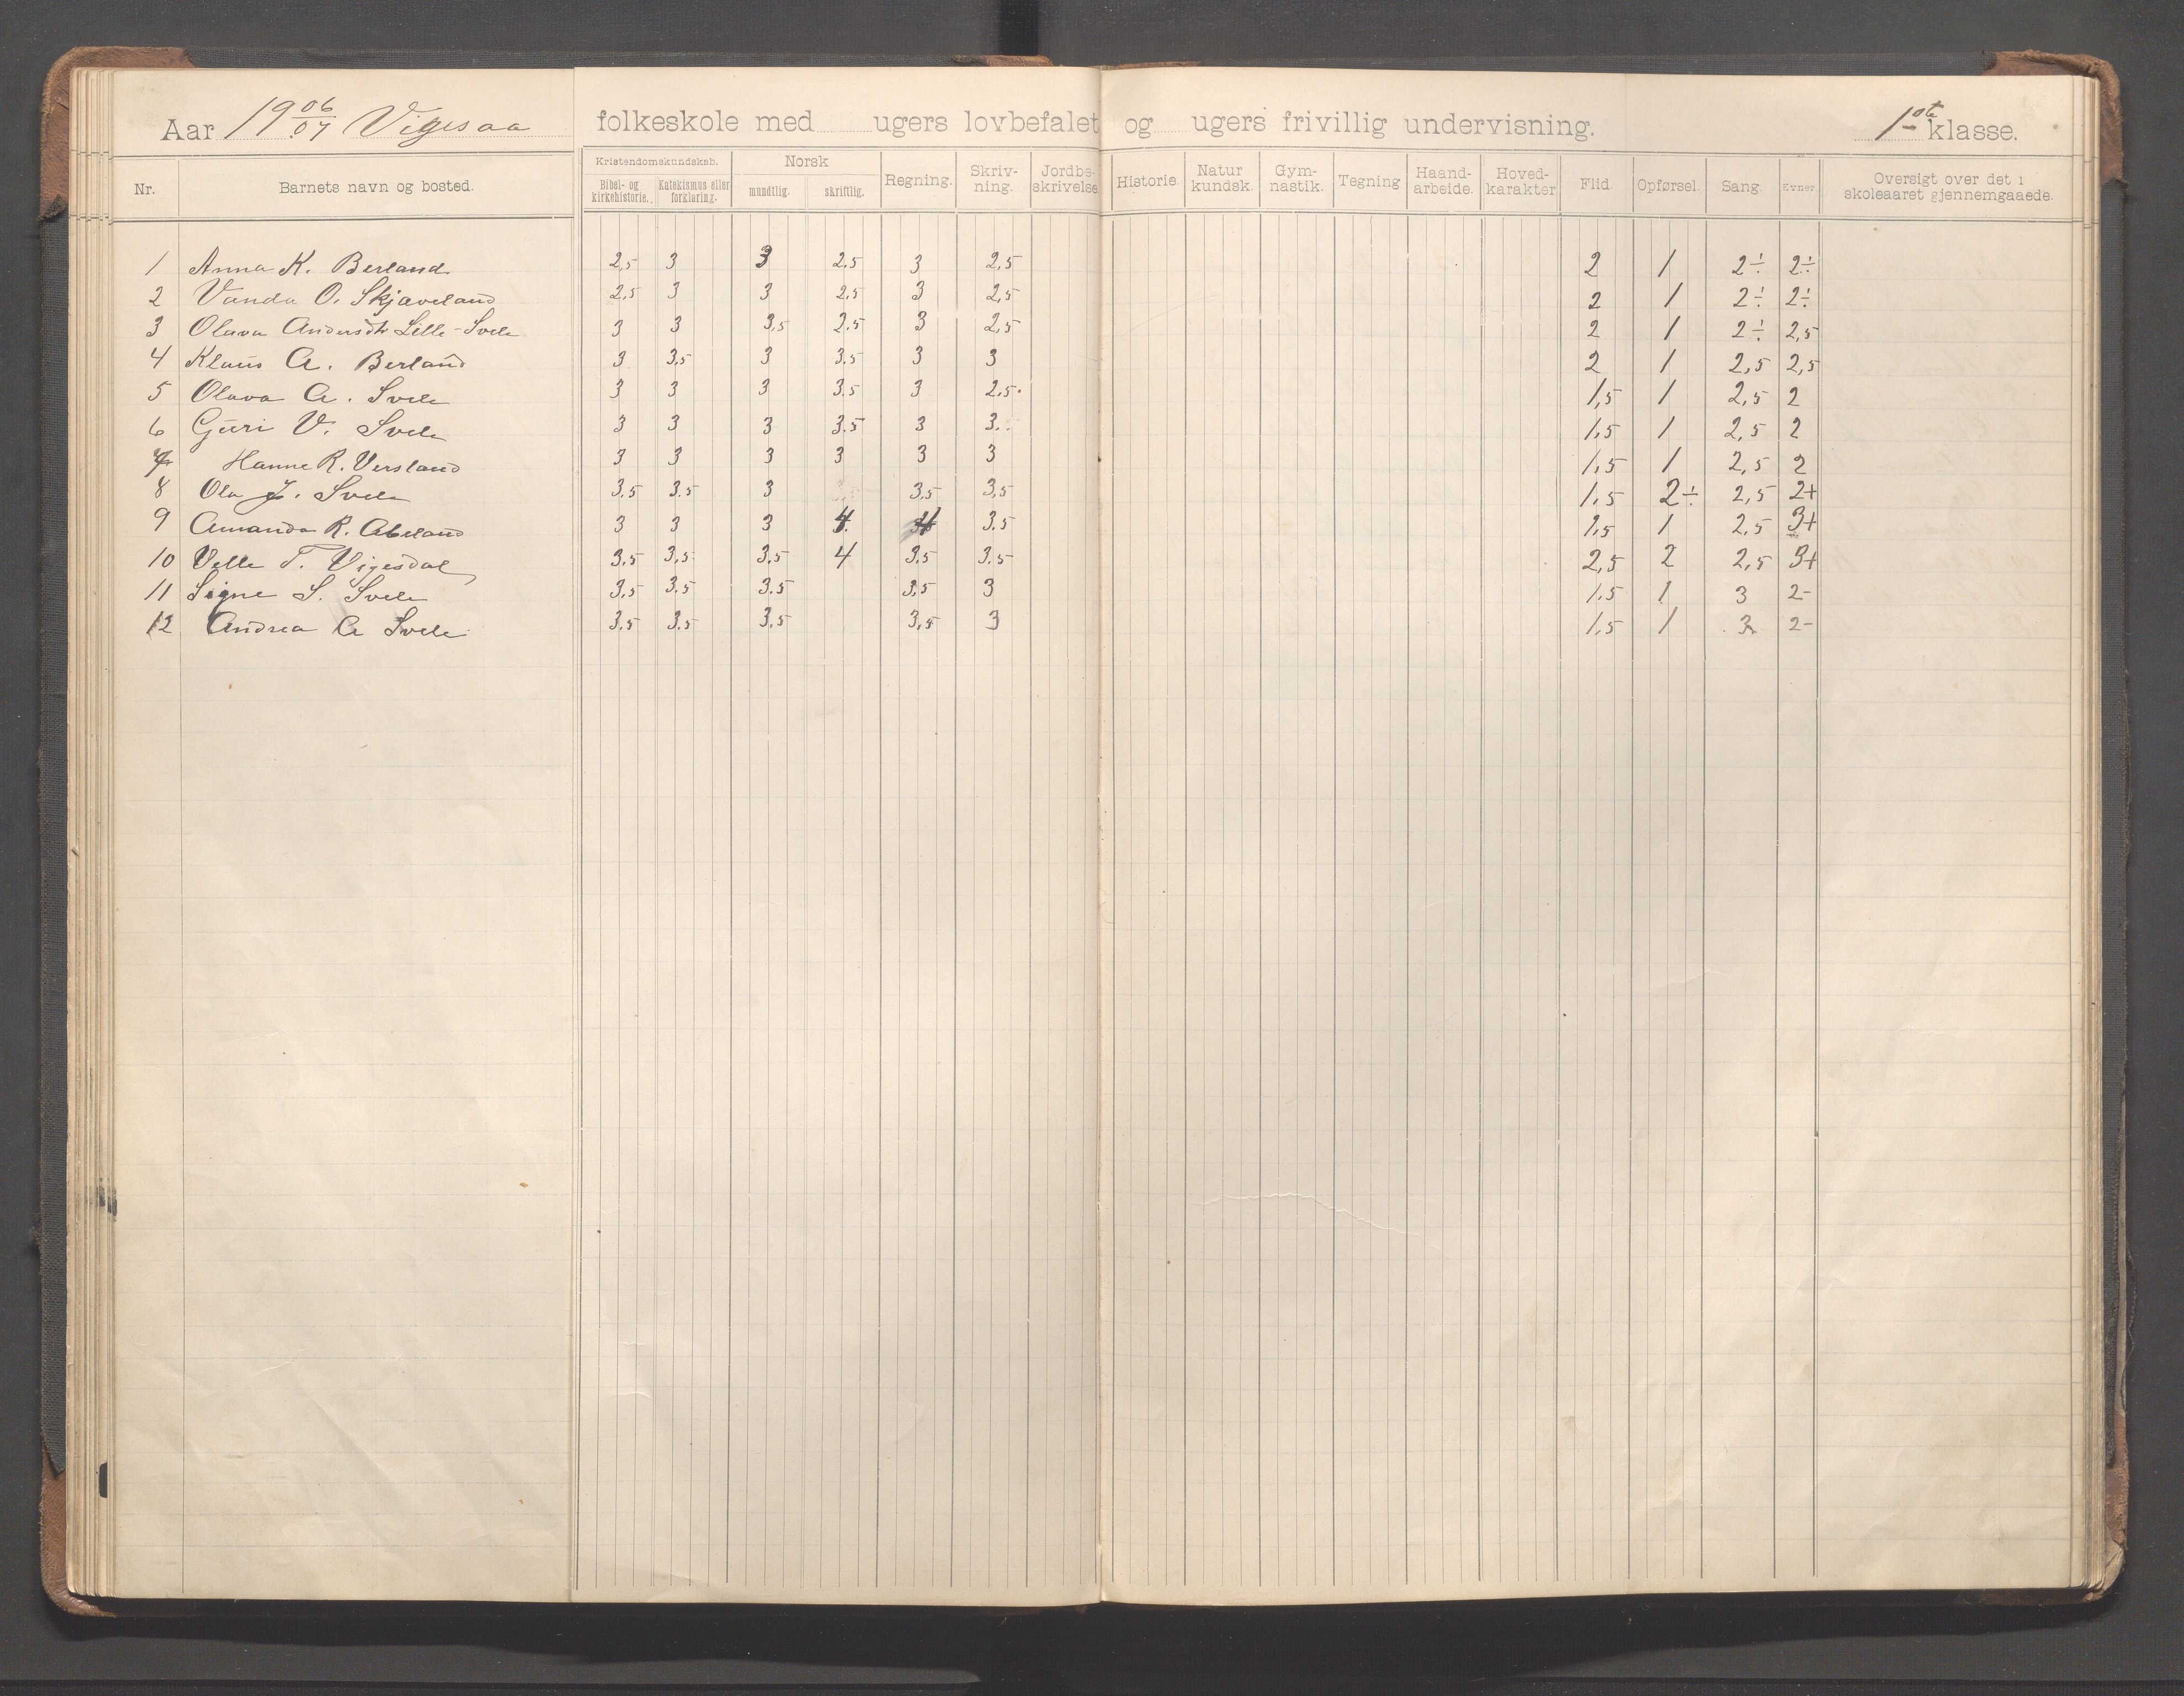 Aar 19 06/07 Vigesaa folkeskole med ugers lovbefalet og ugers frivillig undervisning. 1ste klasse.
Nr. Barnets navn og bosted. Kristendomskundskab. Bibel- og kirkehistorie. Katekismus eller forklaring. Norsk mundtlig. skriftlig. Regning. Skriv-ning. Jordbe-skrivelse Historie. Natur kundsk. Gym-nastik. Tegning Haand-arbeide. Hoved-karakter Flid. Opførsel. Sang. Evner. Oversigt over det i skoleaaret gjennemgaaede.
1 Anna K. Berland 2,5 3 3 2,5 3 2,5 2 1 2÷ 2÷
2 Vanda O. Skjæveland 2,5 3 3 2,5 3 2,5 2 1 2÷ 2÷
3 Olava Andersdtr Lille-Svele 3 3 3,5 2,5 3 2,5 2 1 2÷ 2,5
4 Klaus A. Berland 3 3,5 3 3,5 3 3 2 1 2,5 2,5
5 Olava A. Svele 3 3 3 3,5 3 2,5 1,5 1 2,5 2
6 Guri V. Svele 3 3 3 3.5 3 3. 1,5 1 2,5 2
7 Hanne R. Versland 3 3 3 3 3 3 1,5 1 2,5 2
8 Ola J. Svele 3,5 3.5 3 3,5 3,5 1,5 2÷ 2,5 2+
9 Amanda R. Abeland 3 3 3 4 4 3.5 1,5 1 2,5 3+
10 Velle T. Vigesdal 3,5 3,5 3,5 4 3,5 3.5 2,5 2 2,5 3+
11 Signe S. Svele 3,5 3.5 3.5 3,5 3 1,5 1 3 2-
12 Andrea A Svele 3,5 3.5 3,5 3,5 3 1,5 1 3 2-